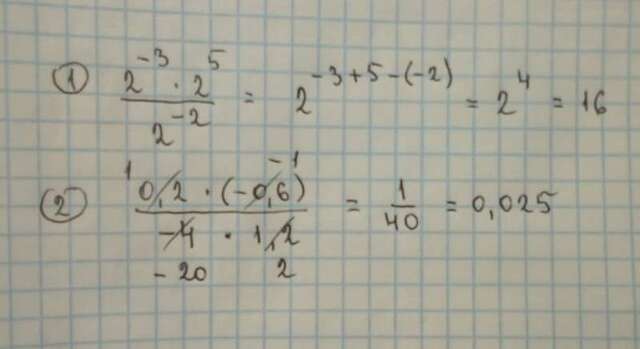 ① (2^-3 · 2^5)/(2^-2) = 2^(-3+5-(-2)) = 2^4 = 16
1 -1
② (0,2 · (-0,6))/(-4 · 1,2) = 1/40 = 0,025
-20 2